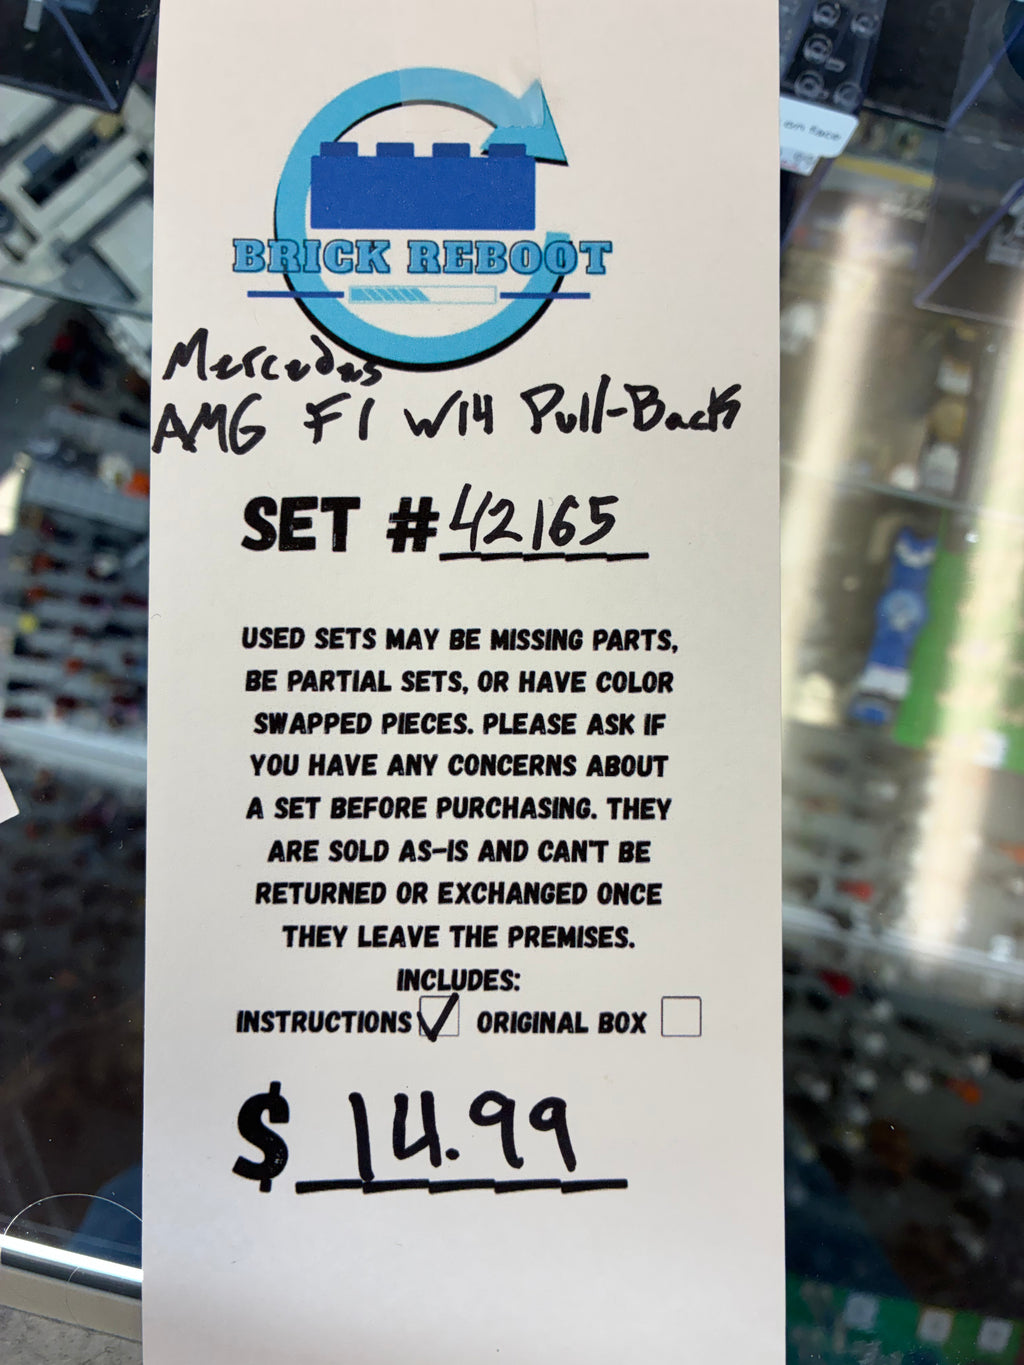 BRICK REBOOT
Mercedes
AMG F1 W14 Pull-Back
SET #42165
USED SETS MAY BE MISSING PARTS,
BE PARTIAL SETS, OR HAVE COLOR
SWAPPED PIECES. PLEASE ASK IF
YOU HAVE ANY CONCERNS ABOUT
A SET BEFORE PURCHASING. THEY
ARE SOLD AS-IS AND CAN'T BE
RETURNED OR EXCHANGED ONCE
THEY LEAVE THE PREMISES.
INCLUDES:
INSTRUCTIONS ✓ ORIGINAL BOX
$ 14.99